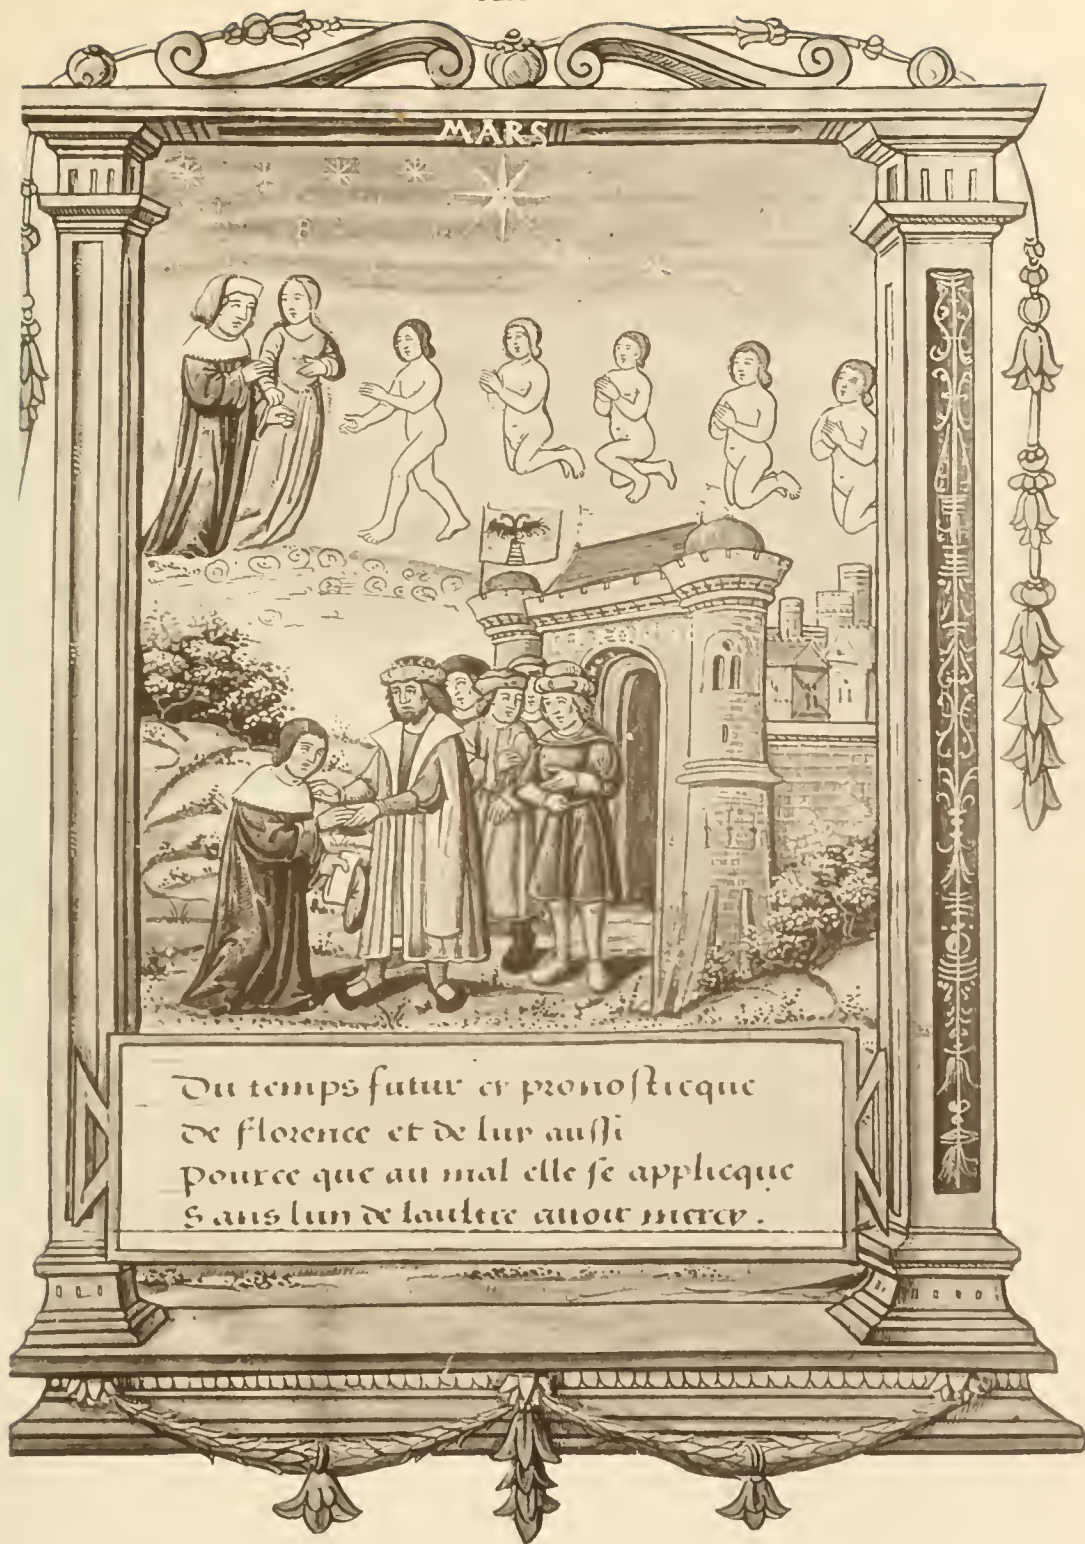 MARS
Du temps futur et pronosticque
de florence et de luy aussi
pource que au mal elle se applicque
Sans lun de laultre auoir mercy.